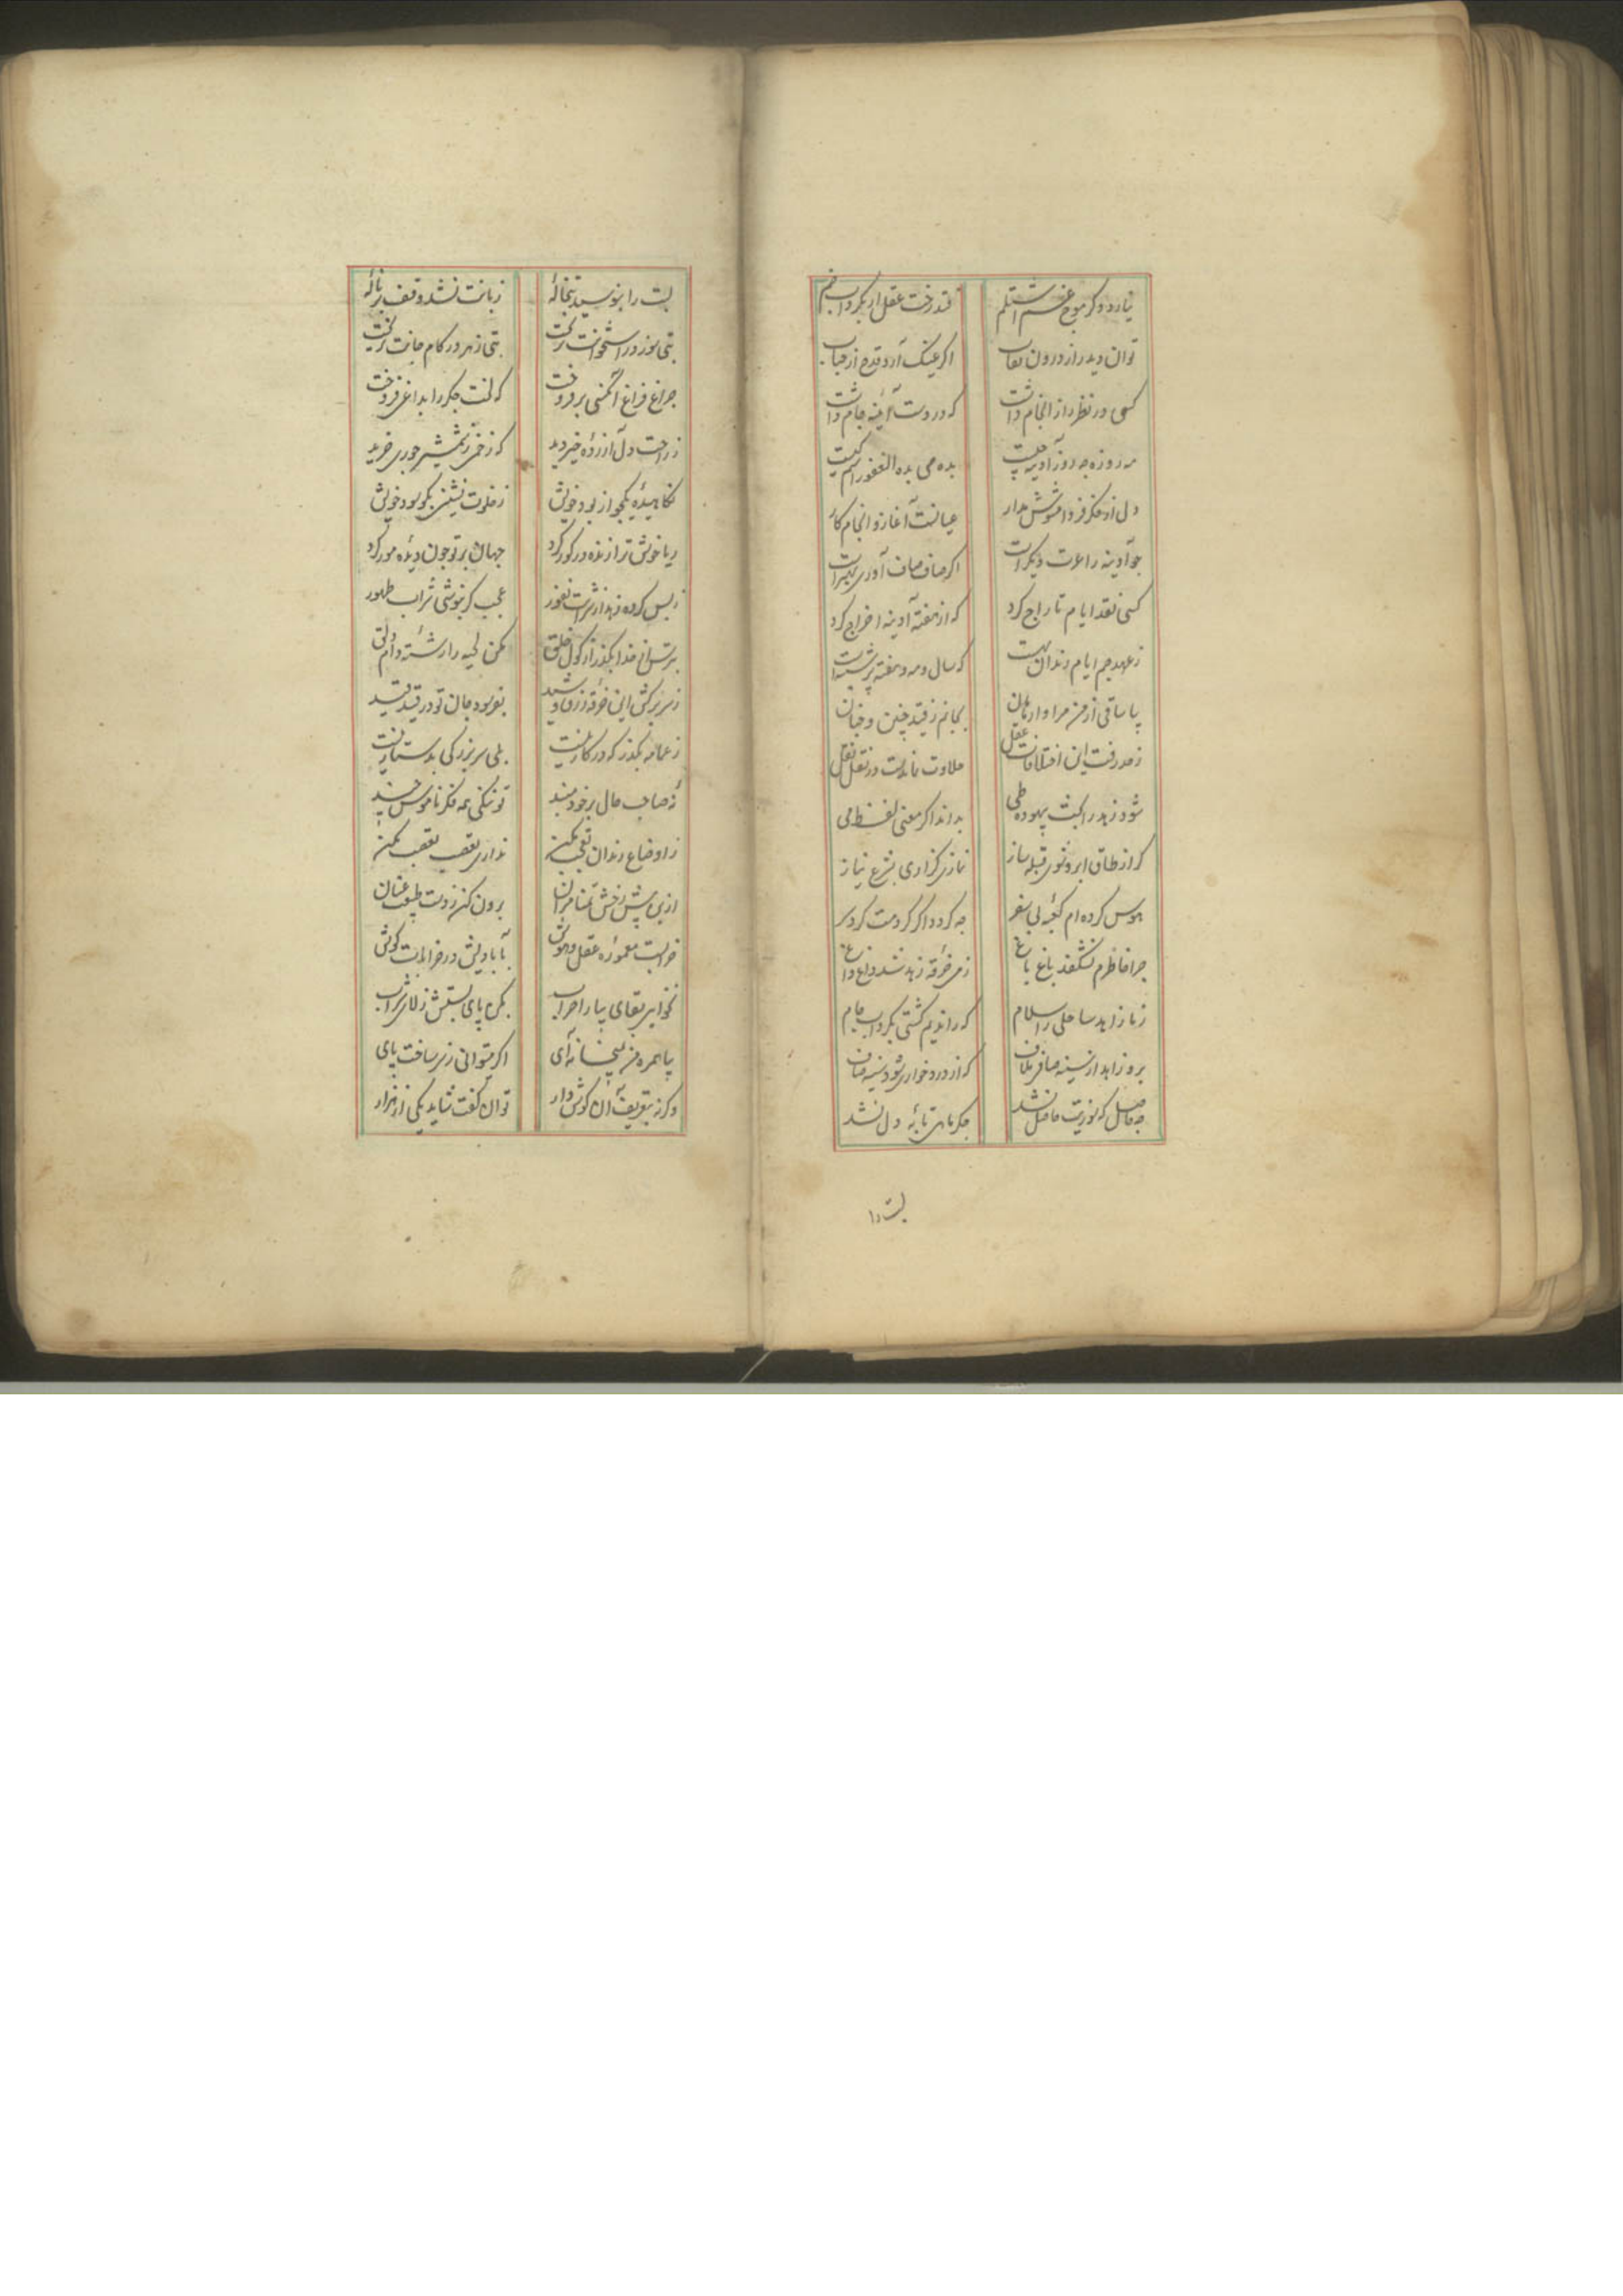 نیارد دکر موج غم اشتلم فتد رخت عقل ار بکرداب خم
توان دید راز درون نقاب اکر عینک آرد قدح از حباب
کسی در نظر راز انجام داشت که در دست آئینه جام داشت
مه روزه چه روز آدینه چیست بده می بده الغفور اسم کیست
دل از فکر فردا مشوش مدار عیانست آغاز و انجام کار
چو آدینه را عزت دیکر است اکر صاف صاف آوری بهتر است
کسی نقد ایام تاراج کرد که از هفته آدینه اخراج کرد
ز عهد جم ایام رندان بهست که سال و مه و هفته پر شنبه است
بیا ساقی از من مرا وارهان بجانم ز قید چنین و چنان
ز حد رفت این اختلاقات عقل حلاوت نماندست در نقل نقل
شود زهد را بحث بیهوده طی بداند اکر معنی لفظ می
کر از طاق ابرو شوی قبله ساز نمازی کزاری بشرع نیاز
هوس کرده ام کعبه بی سفر چه کردد اکر کردمت کرد سر
چرا خاطرم نشکفد باغ باغ ز می خرقه زهد شد داغ داغ
ز ما زاهد ساحلی را سلام که راندیم کشتی بکرداب جام
برو زاهد از سینه صافی ملاف که از درد خواری شود سینه صاف
چه حاصل که نوریت حاصل نشد جکر ماهی تابه دل نشد
لبت را
لبت را نبوسید تبخاله زبانت نشد وقف بر ناله
تبی سوز در استخوانت نریخت تبی زهر در کام جانت نریخت
چراغ فراغ آنکسی برفروخت که لخت جکر را بداغی فروخت
ز راحت دل آزرده خیر دید که زخمی ز شمشیر جوری خرید
نکاهیده یکجو از بود خویش ز خلوت نشینی بکو سود خویش
ریا خوش ترا زنده در کور کرد جهان بر تو چون دیده مور کرد
ز بس کرده زهد از شرابت نفور عجب کر بنوشی شراب طهور
بترس از خدا بکذر از کول خلق مکن لحیه را رشته دام دلق
ز سر برکش این خرقه زرق و شید بفرسود جان تو در قید قید
ز عمامه بکذر که در کار نیست همی سر بزرکی بدستار نیست
نه صاحب حال بر خود مبند تو ننکی همه فکر ناموس چند
ز اوضاع رندان تعجب مکن نداری تعقب تعقب مکن
ازین پیش رخش تمنا مران برون کن ز دست طبیعت عنان
خرابست معموره عقل و هوش بآبادیش در خرابات کوش
نخواهی بقای بنا را خراب بکن پای بستش ز لای شراب
بیا همره من بمیخانه آی اکر میتوانی ز سر ساخت پای
وکرنه بتعریف آن کوش دار توان کفت شاید یکی از هزار